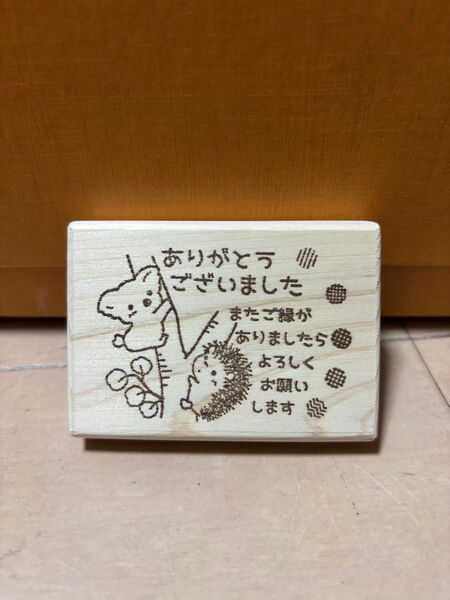 ありがとう
ございました
またご縁が
ありましたら
よろしく
お願い
します